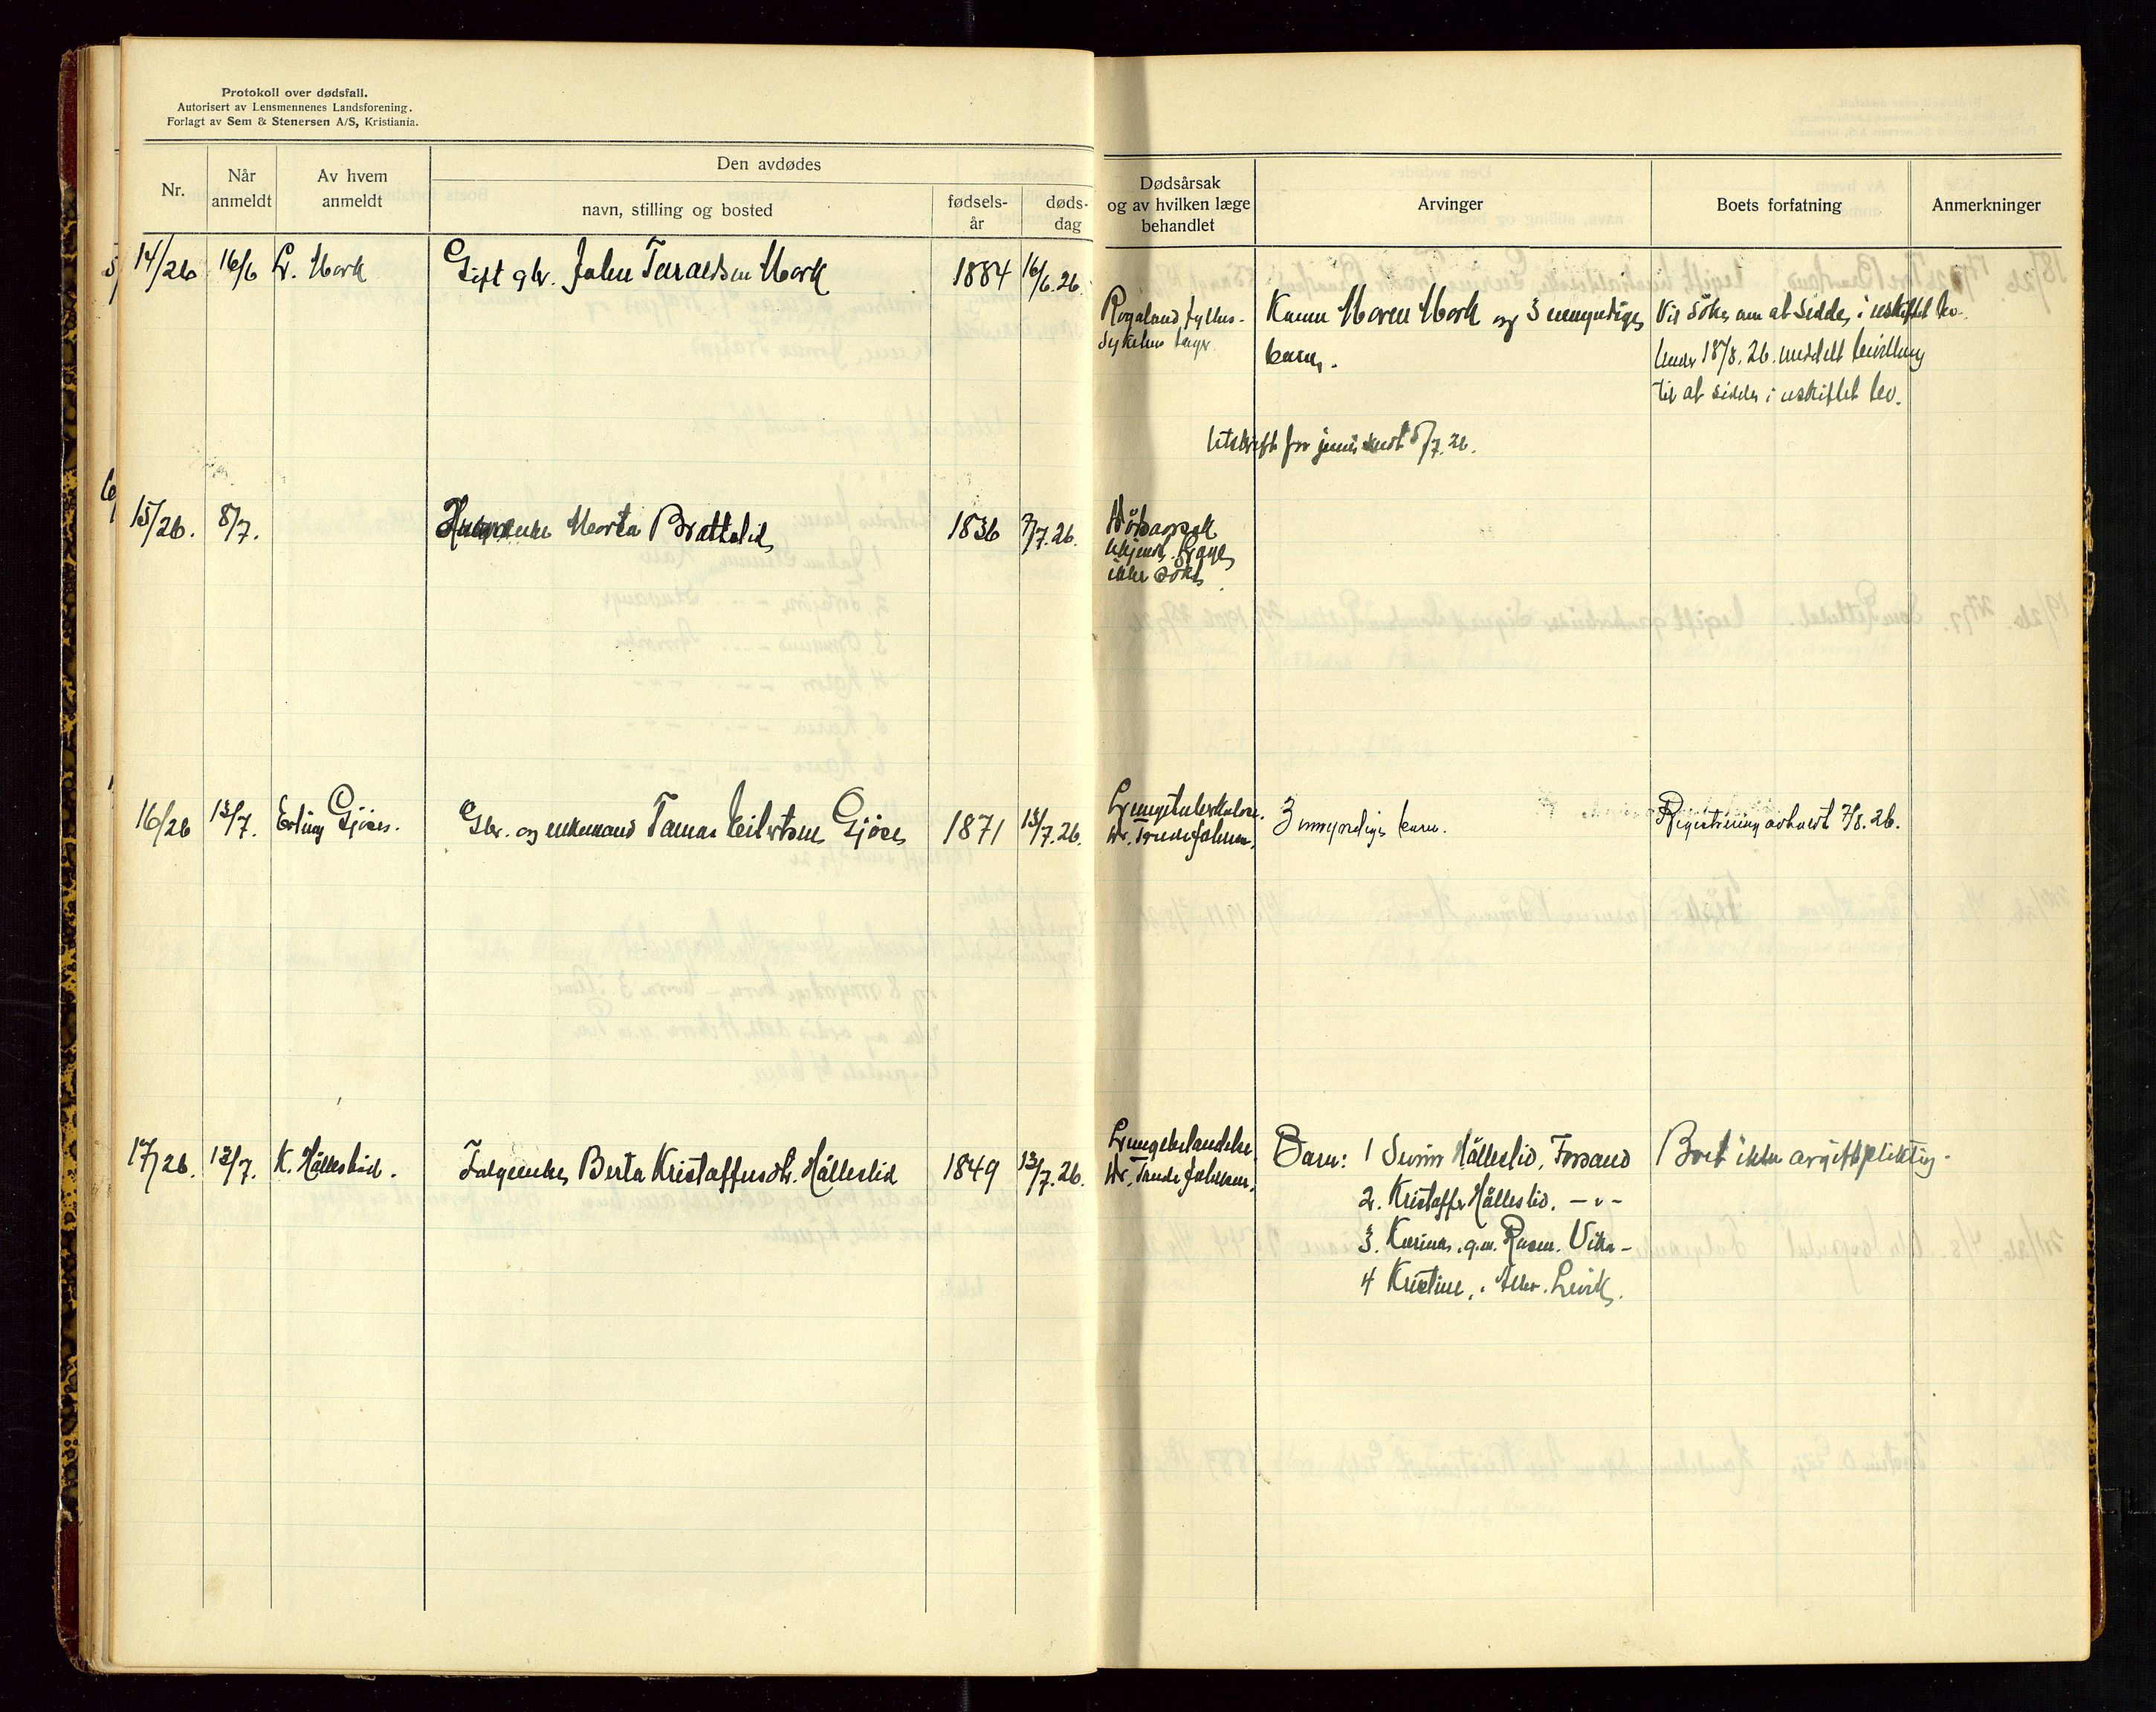 Protokoll over dødsfall.
Autorisert av Lensmennenes Landsforening.
Forlagt av Sem & Stenersen A/S, Kristiania.
Nr.
Når anmeldt
Av hvem anmeldt
Den avdødes
navn, stilling og bosted
fødsels-år
døds-dag
Dødsårsak
og av hvilken læge
behandlet
Arvinger
Boets forfatning
Anmerkninger
14/26 16/6 L. Mork Gift gbr. John Taraldsen Mork 1884 16/6.26
Rogaland fylkes- Kone Maren Mork og 3 umyndige Vil søke om at sidde i uskiftet bo.
barn. Under 18/8.26. meddelt bevilling
til at sidde i uskiftet bo.
Utskrift for juni sendt 5/7.26.
15/26. 8/7. Marta Brattelid 1836 7/7.26. Dödsaarsak
ukjendt. Læge
ikke sökt
16/26 15/7. Erling Gjøse. Gbr. og enkemand Tomas Eilertsen Gjöse 1871 15/7.26. Lungetuberkulose. 3 umyndige barn. Registrering avholdt 7/8.26.
17/26. 13/7. K. Hålleslid. Folgeenke Berta Kristoffersdtr. Hålleslid 1849 13/7.26. Lungebetændelse. Barn: 1 Hålleslid, Forsand Boet ikke avgiftspliktig.
2. Kristoffer Hålleslid. -"-
3. Karina, g.m. Rasm. Vika -
4 Kristine, " Levik.